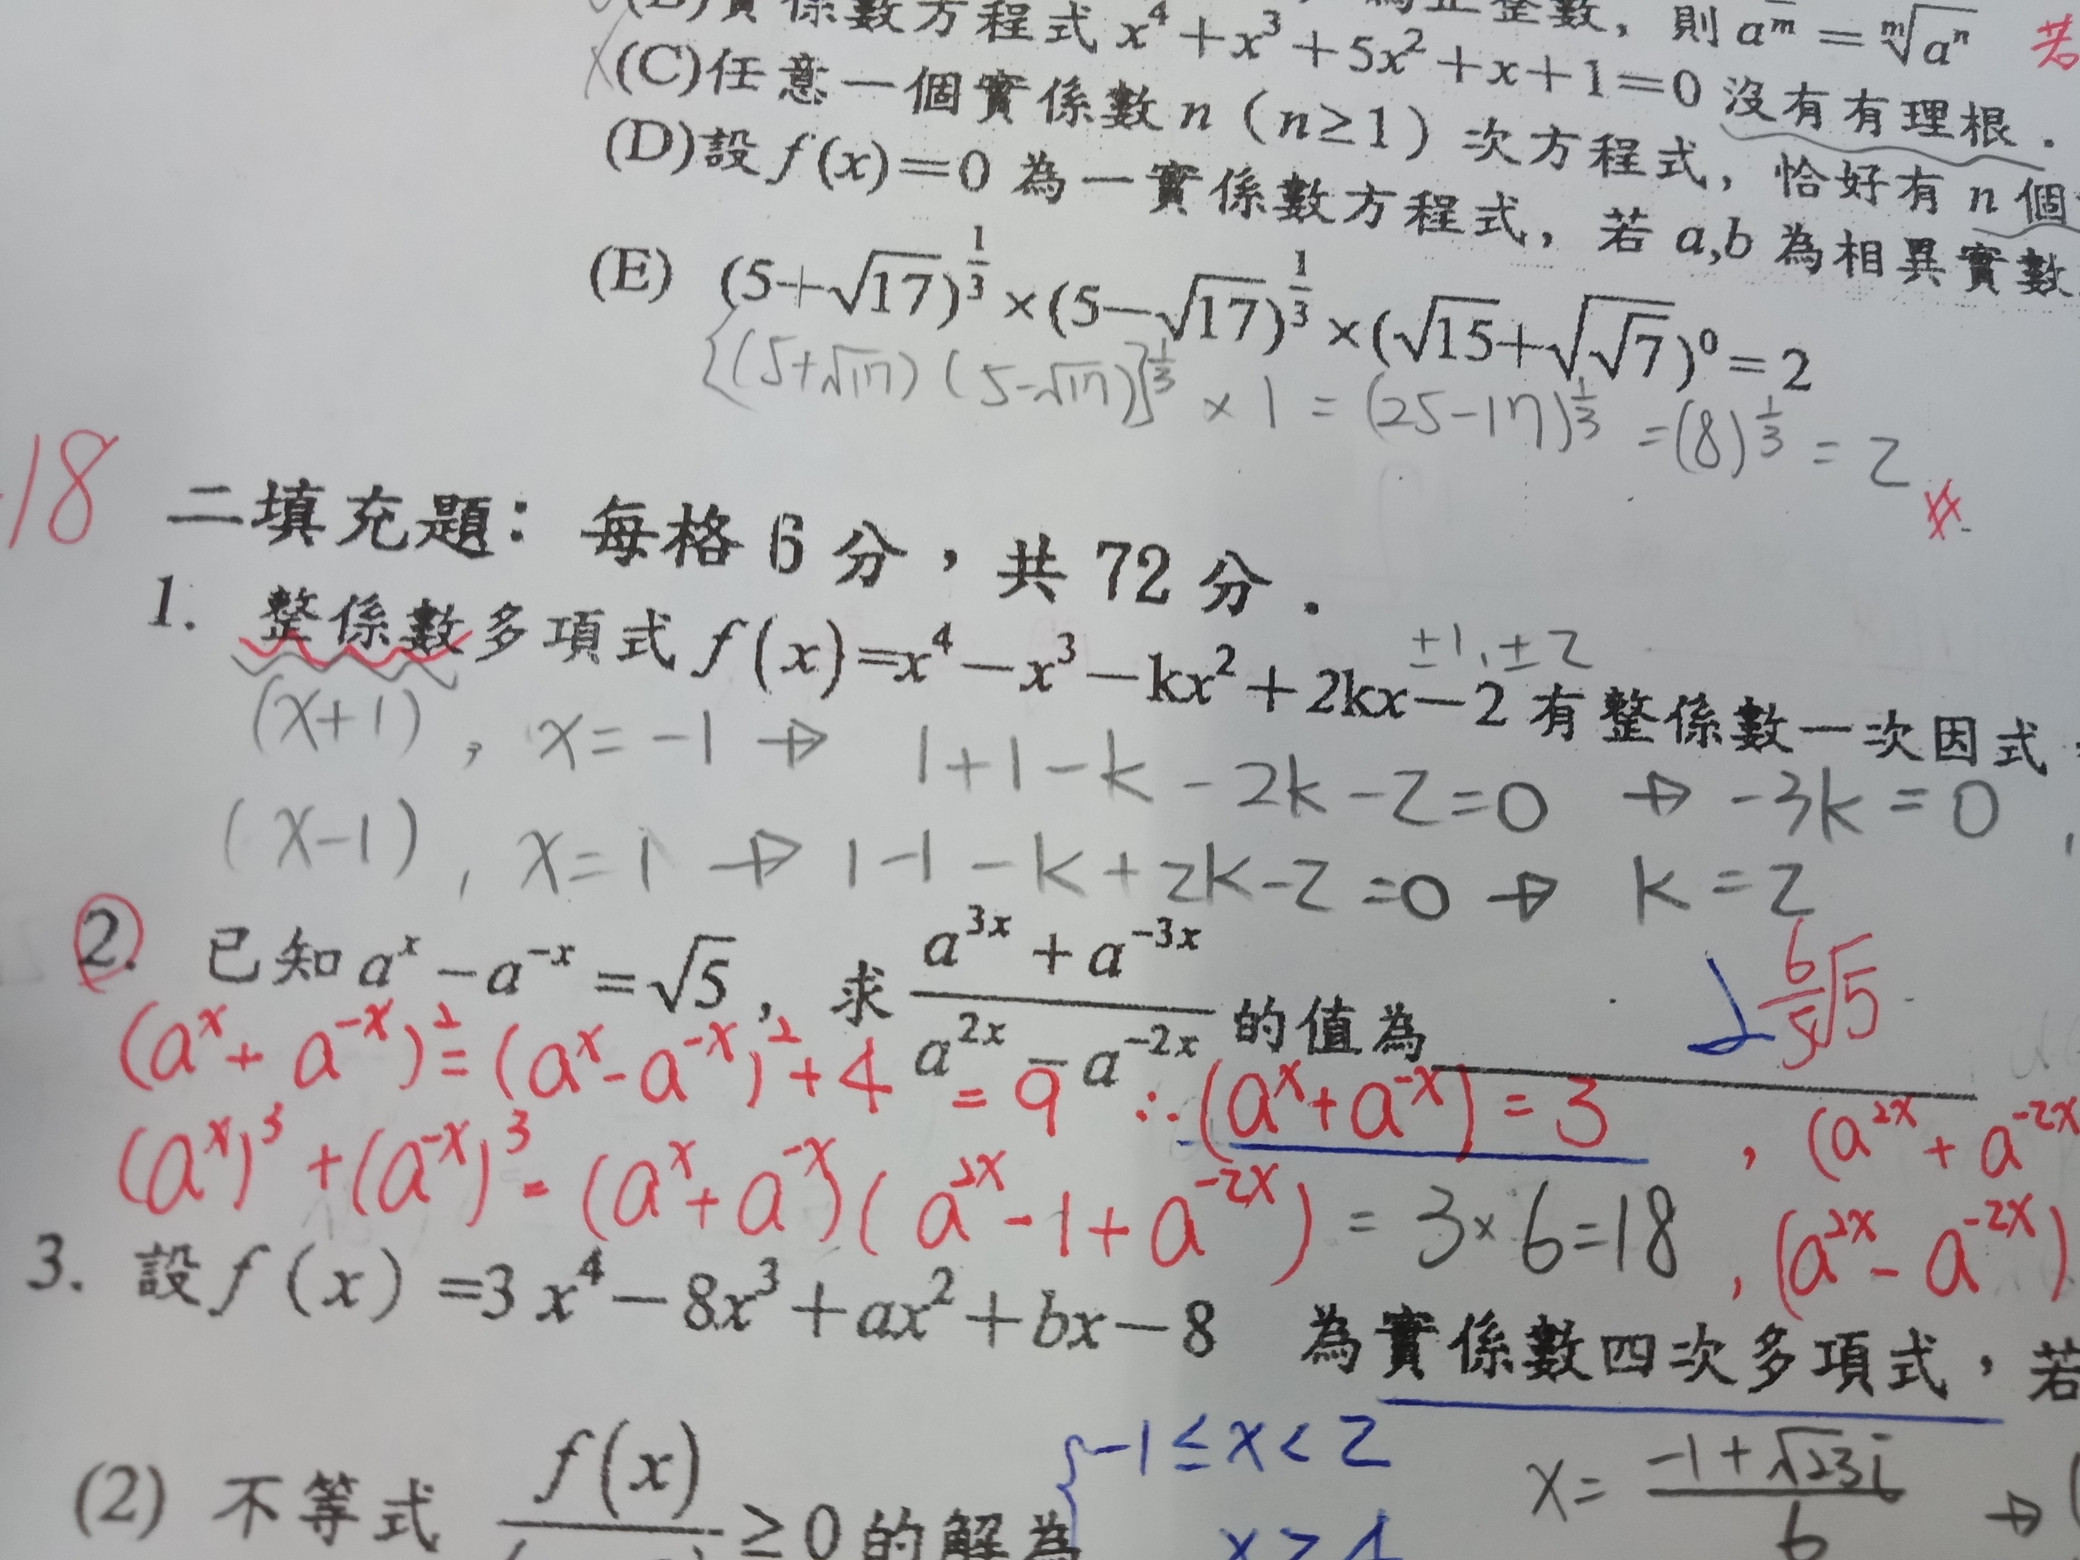 實係數方程式 x⁴+x³+5x²+x+1=0 沒有有理根.
為正整數, 則 a^(n/m) = ᵐ√(aⁿ) 若
(C)任意一個實係數 n (n≥1) 次方程式, 恰好有 n 個
(D)設 f(x)=0 為一實係數方程式, 若 a,b 為相異實數
(E) (5+√17)^(1/3) × (5−√17)^(1/3) × (√15+√√7)⁰ = 2
{(5+√17) (5-√17)}^(1/3) × 1 = (25-17)^(1/3) = (8)^(1/3) = 2 #
-18
二填充題: 每格 6 分, 共 72 分.
±1, ±2
1. 整係數多項式 f(x)=x⁴−x³−kx²+2kx−2 有整係數一次因式,
(x+1), x=-1 → 1+1-k-2k-2=0 → -3k=0,
(x-1), x=1 → 1-1-k+2k-2=0 → k=2
2. 已知 a^x − a^(−x) = √5, 求 (a^(3x) + a^(−3x))/(a^(2x) − a^(−2x)) 的值為 6/5 √5
(a^x + a^(-x))² = (a^x - a^(-x))² + 4 = 9 ∴ (a^x + a^(-x)) = 3, (a^(2x) + a^(-2x)
(a^x)³ + (a^(-x))³ = (a^x + a^(-x))(a^(2x) - 1 + a^(-2x)) = 3×6=18, (a^(2x) - a^(-2x))
3. 設 f(x)=3x⁴−8x³+ax²+bx−8 為實係數四次多項式, 若
(2) 不等式 f(x) ≥0 的解為 { -1≤x<2
x = (-1+√23i)/6 →